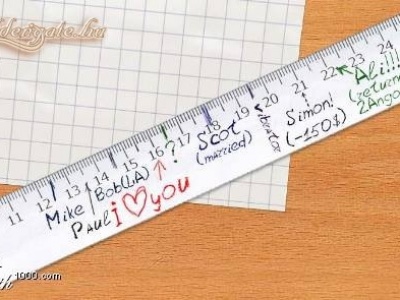 11 12 13 14 15 16 17 18 19 20 21 22 23 24
Mike / Bob(LA)
Paul
?
i ♡ you
Scot
(married)
vibrator
Simon!
(-150$)
Ali!!!
(return
2Ango
1000.com